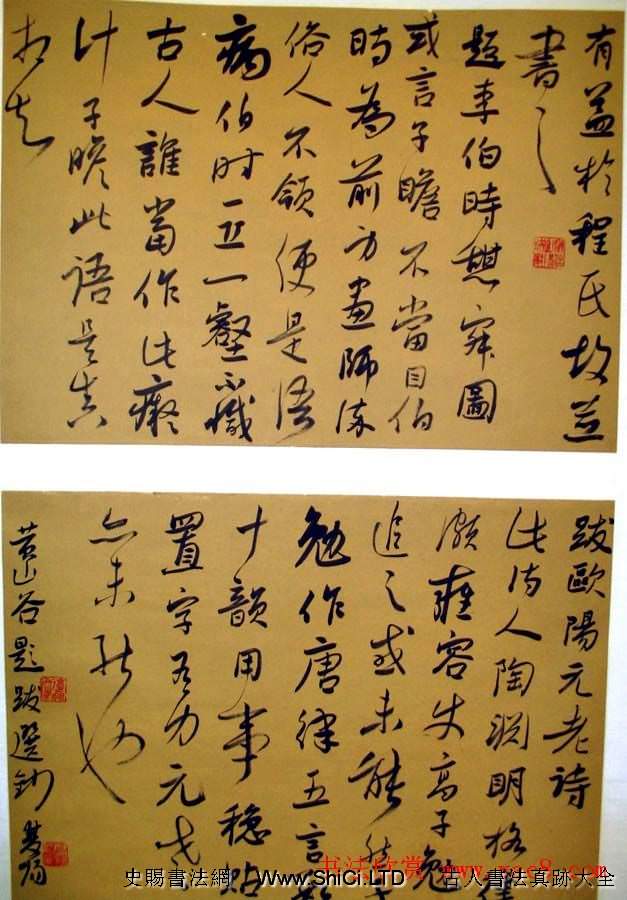 有益於程氏故並
書之
題李伯時憩寂圖
或言子瞻不當目伯
時為前身畫師流
俗人不領便是語
病伯時一丘一壑不減
古人誰當作此癡
計子瞻此語是真
相知
跋歐陽元老詩
此詩人陶淵明格律
瀕雍容使高子勉
追之或未能然子
勉作唐律五言數
十韻用事穩貼
置字有力元老
亦未能也
黃山谷題跋選鈔
書法欣賞 www.yac8.com
史賜書法網 Www.ShiCi.LTD 古人書法真跡大全